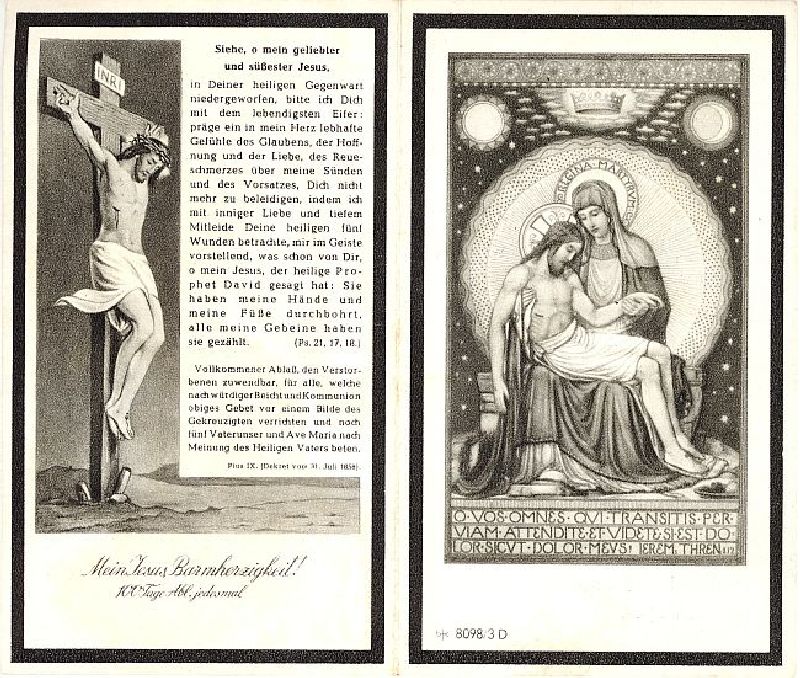 INRI
Siehe, o mein geliebter
und süßester Jesus,
in Deiner heiligen Gegenwart
niedergeworfen, bitte ich Dich
mit dem lebendigsten Eifer:
präge ein in mein Herz lebhafte
Gefühle des Glaubens, der Hoff-
nung und der Liebe, des Reue-
schmerzes über meine Sünden
und des Vorsatzes, Dich nicht
mehr zu beleidigen, indem ich
mit inniger Liebe und tiefem
Mitleide Deine heiligen fünf
Wunden betrachte, mir im Geiste
vorstellend, was schon von Dir,
o mein Jesus, der heilige Pro-
phet David gesagt hat: Sie
haben meine Hände und
meine Füße durchbohrt,
alle meine Gebeine haben
sie gezählt. (Ps. 21, 17, 18.)
Vollkommener Ablaß, den Verstor-
benen zuwendbar, für alle, welche
nach würdiger Beicht und Kommunion
obiges Gebet vor einem Bilde des
Gekreuzigten verrichten und noch
fünf Vaterunser und Ave Maria nach
Meinung des Heiligen Vaters beten.
Pius IX. (Dekret vom 31. Juli 1858).
Mein Jesus, Barmherzigkeit!
100 Tage Abl. jedesmal
REGINA MARTYRVM
O·VOS·OMNES·QVI·TRANSITIS·PER·
VIAM·ATTENDITE·ET·VIDETE·SI·EST·DO-
LOR·SICVT·DOLOR·MEVS: JEREM. THREN
8098/3 D